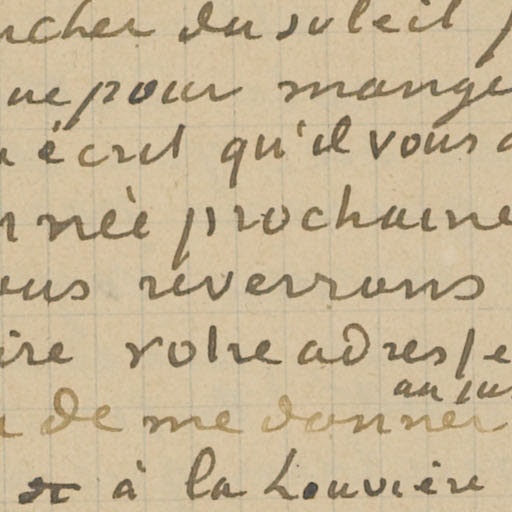 ucher du soleil
ue pour mange
écrit qu'il vous
née prochaine
ous reverrons
ire votre adresse
au jus
de me donner
à la Louvière